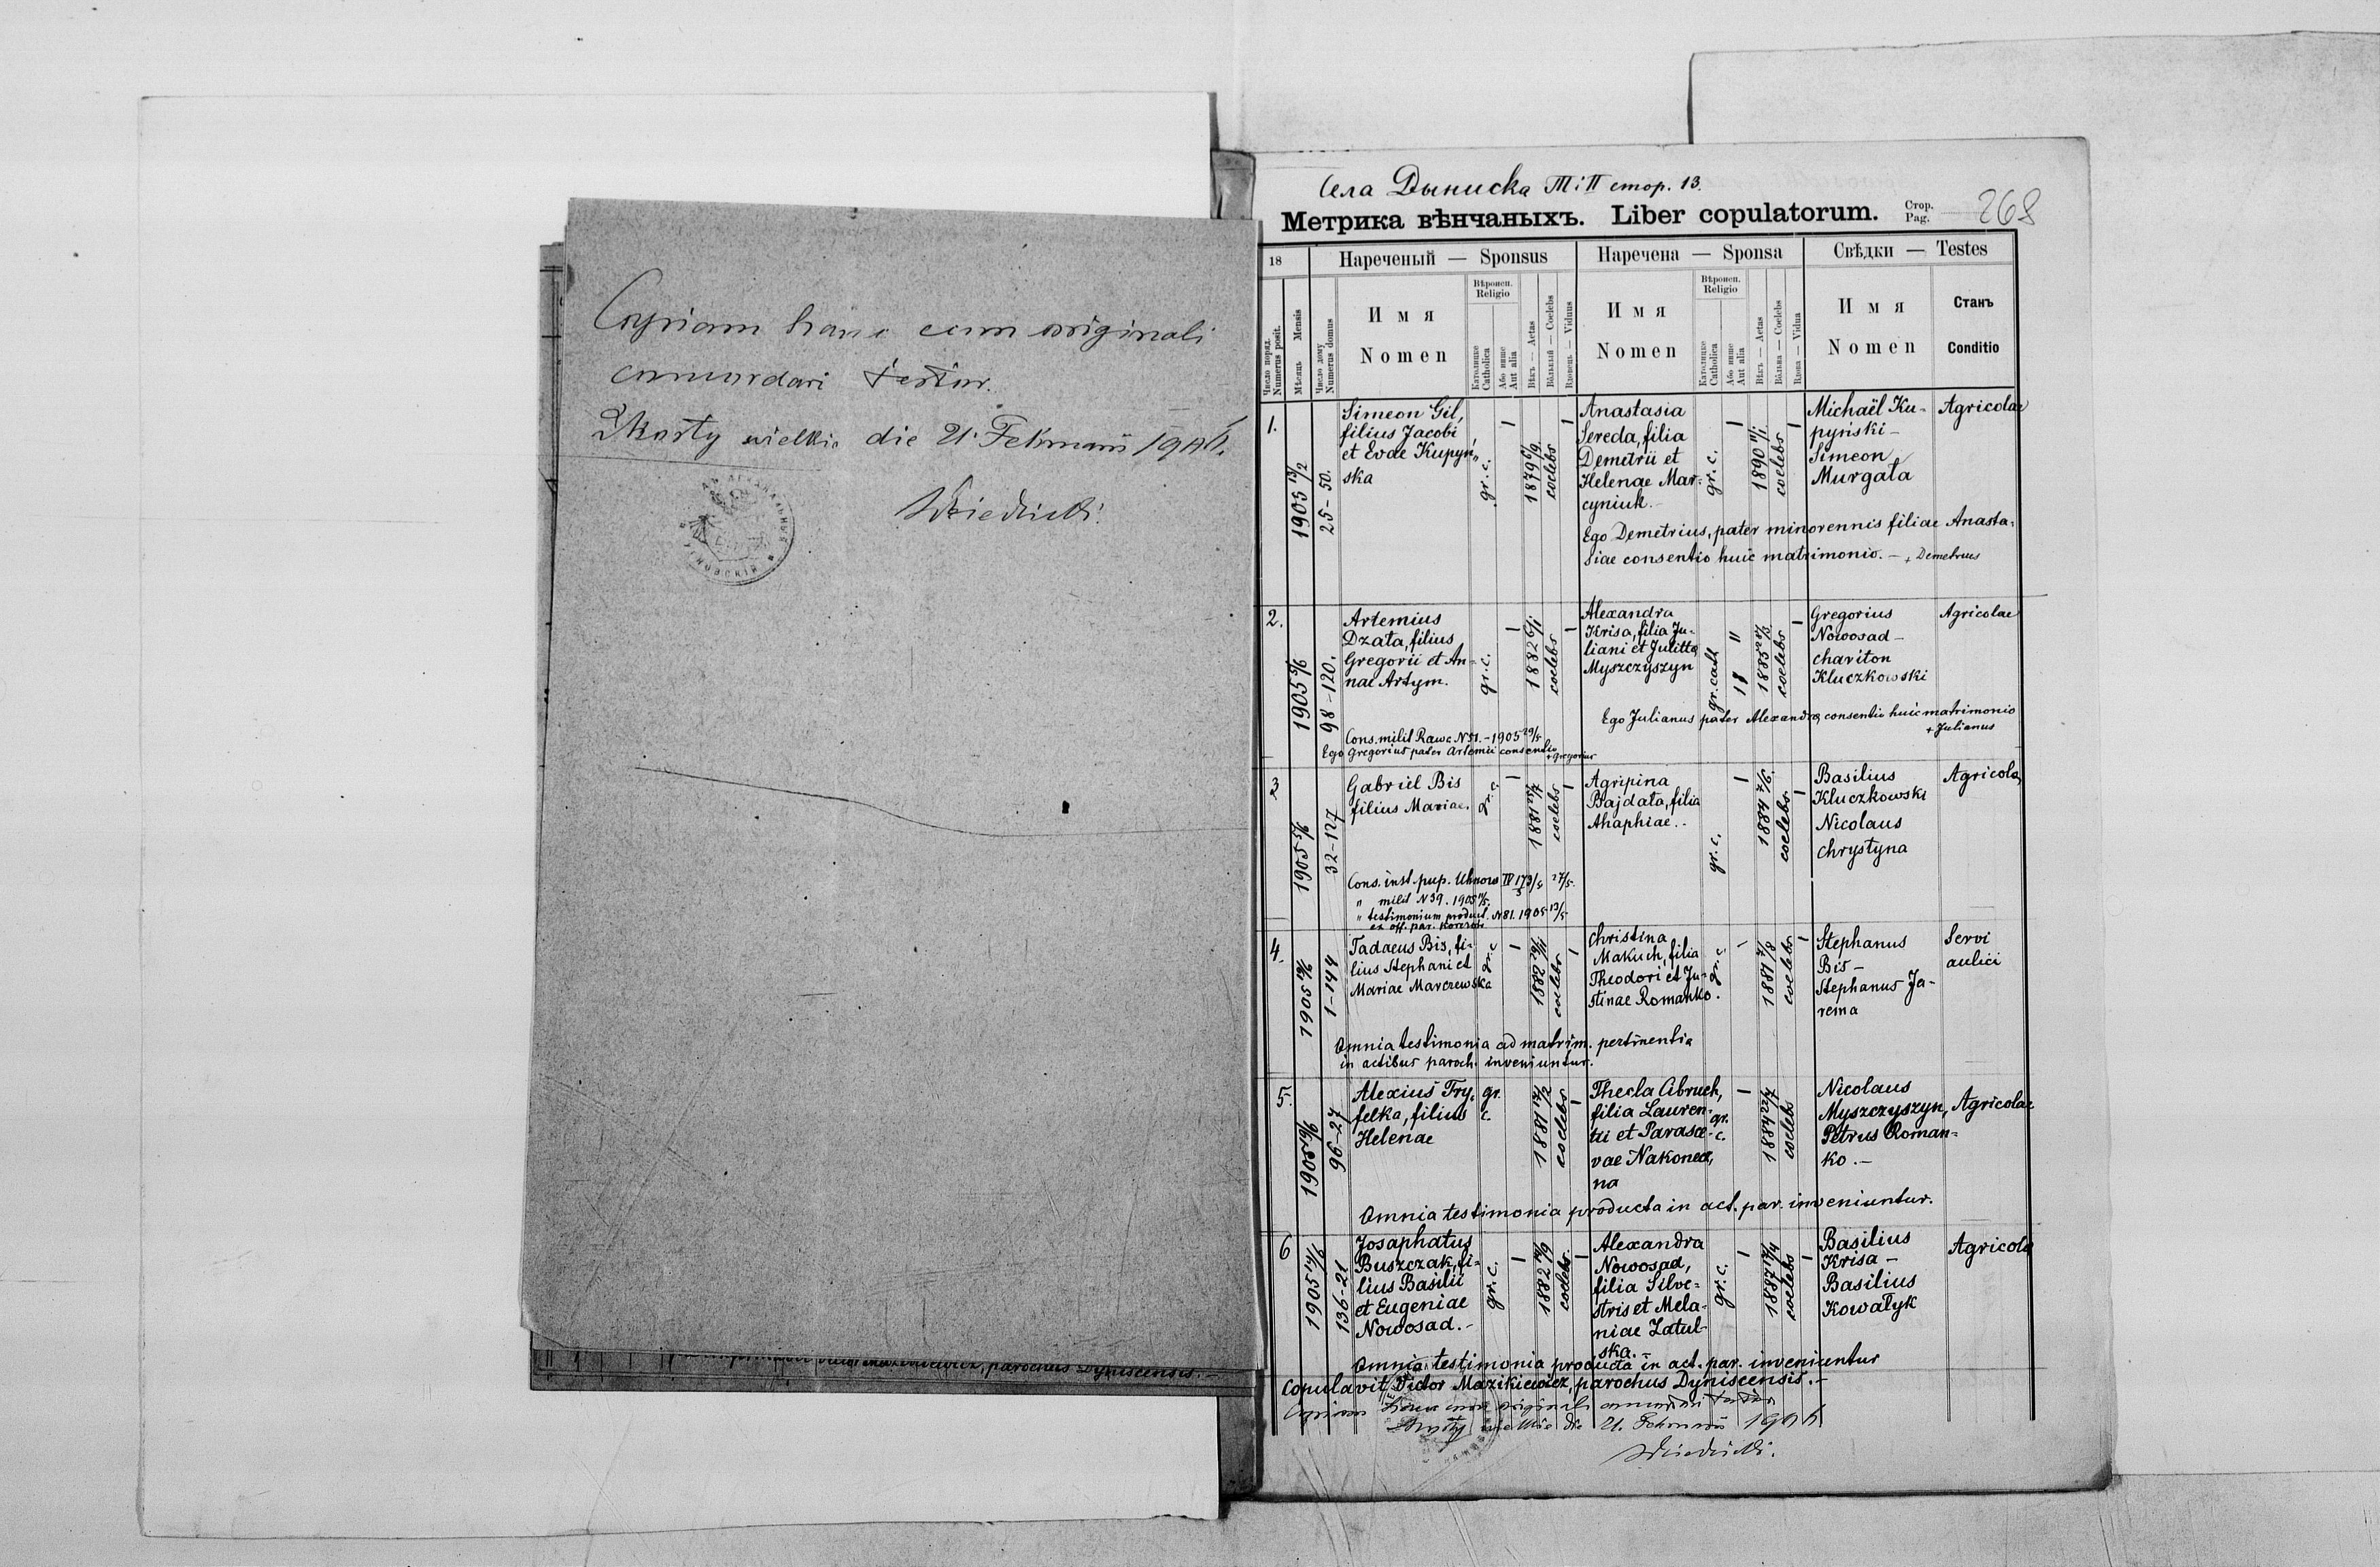 Copiam hanc cum originali
concordari testor.
Korty wielkie die 21. Februarii 1906.
Села Дыниска Т: II стор. 13.
Метрика вѣнчаныхъ. Liber copulatorum. Стор. Pag. 268
18
Нареченый — Sponsus
Наречена — Sponsa
Свѣдки — Testes
Число поряд. Numerus posit.
Мѣсяць Mensis
Число дому Numerus domus
Имя Nomen
Вѣроисп. Religio
Католицке Catholica
Або инше Aut alia
Вѣкъ — Aetas
Вôльный — Coelebs
Вдовець — Viduus
Имя Nomen
Вѣроисп. Religio
Католицке Catholica
Або инше Aut alia
Вѣкъ — Aetas
Вôльна — Coelebs
Вдова — Vidua
Имя Nomen
Станъ Conditio
1.
1905
25 - 50.
Simeon Gil,
filius Jacobi
et Evae Kupyn,,
ska
gr. c.
1879
coelebs
Anastasia
Sereda, filia
Demetrii et
Helenae Mar-
cyniuk.
gr. c.
1890
coelebs
Michaël Ku-
pyński –
Simeon
Murgata
Agricolae
Ego Demetrius, pater minorennis filiae Anasta-
siae consentio huic matrimonio. – + Demetrius
2.
1905 5/6
98 - 120.
Artemius
Dzata, filius
Gregorii et An-
nae Artym.
gr. c.
1882
coelebs
Alexandra
Krisa, filia Ju-
liani et Julitta
Myszczyszyn
gr. cath
1885
coelebs
Gregorius
Nowosad –
Chariton
Kluczkowski
Agricolae
Ego Julianus pater Alexandra consentio huic matrimonio
+ Julianus
Cons. milit Rawa N 51. – 1905 29/5
Ego Gregorius pater Artemii consentio
+ Gregorius
3
1905 5/6
32-127
Gabriel Bis
filius Mariae.
gr. c.
1881
coelebs
Agripina
Bajdata, filia
Ahaphiae..
gr. c.
1884
coelebs
Basilius
Kluczkowski
Nicolaus
Chrystyna
Agricola
Cons. inst. pup. Uhnow IV 173/5 27/5.
" milit N 39. 1905
" testimonium product. N 81. 1905 13/5
ex off. par.
4.
1905
1-144
Tadaeus Bis, fi-
lius Stephani et
Mariae Marczewska
gr. c
1882
coelebs
Christina
Makuch, filia
Theodori et Ju-
stinae Romanko.
gr. c
1881 7/8
coelebs
Stephanus
Bis –
Stephanus Ja-
rema
Servi
aulici
Omnia testimonia ad matrim. pertinentia
in actibus paroch. inveniuntur.
5.
1905
96-27
Alexius Fry,
felka, filius
Helenae
gr.
c.
1881
coelebs
Thecla Cibruch,
filia Lauren-
tii et Parasce-
vae Nakonecz,
na
gr.
c.
1884
coelebs
Nicolaus
Myszczyszyn,
Petrus Roman-
ko. –
Agricolae
Omnia testimonia producta in act. par. inveniuntur.
6
1905
136-21
Josaphatus
Buszczak, fi-
lius Basilii
et Eugeniae
Nowosad. –
gr. c.
1882
coelebs
Alexandra
Nowosad,
filia Silve-
stris et Mela-
niae Zatul-
ska. –
gr. c.
1887
coelebs
Basilius
Krisa –
Basilius
Kowatyk
Agricola
Omnia testimonia producta in act. par. inveniuntur
Copulavit Victor Mazikiewicz, parochus Dyniscensis. –
Copiam hanc cum originali concordari testor
Korty wielkie die 21. Februarii 1906
parochus Dyniscensis. –